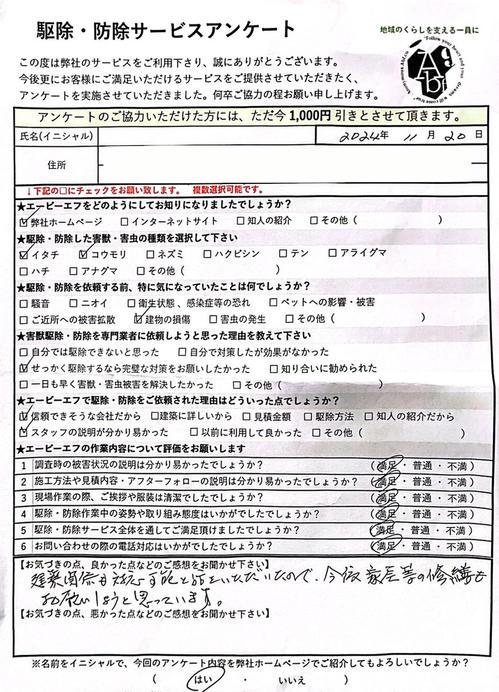 駆除・防除サービスアンケート
地域のくらしを支える一員に
この度は弊社のサービスをご利用下さり、誠にありがとうございます。
今後更にお客様にご満足いただけるサービスを提供させていただきたく、
アンケートを実施させていただきました。何卒ご協力の程お願い申し上げます。
アンケートのご協力いただけた方には、ただ今1,000円引きとさせて頂きます。
氏名(イニシャル) 2024年 11月20日
住所
↓下記の□にチェックをお願い致します。 複数選択可能です。
★エービーエフをどのようにしてお知りになりましたでしょうか?
☑弊社ホームページ □インターネットサイト □知人の紹介 □その他( )
★駆除・防除した害獣・害虫の種類を選択して下さい
☑イタチ ☑コウモリ □ネズミ □ハクビシン □テン □アライグマ
□ハチ □アナグマ □その他( )
★駆除・防除を依頼する前、特に気になっていたことは何でしょうか?
□騒音 □ニオイ □衛生状態、感染症等の恐れ □ペットへの影響・被害
□ご近所への被害拡散 ☑建物の損傷 □害虫の発生 □その他( )
★害獣駆除・防除を専門業者に依頼しようと思った理由を教えて下さい
□自分では駆除できないと思った □自分で対策したが効果がなかった
☑せっかく駆除するなら完璧な対策をお願いしたかった □知り合いに勧められた
□一日も早く害獣・害虫被害を解決したかった □その他( )
★エービーエフで駆除・防除をご依頼された理由はどういった点でしょうか?
☑信頼できそうな会社だから □建築に詳しいから □見積金額 □駆除方法 □知人の紹介だから
☑スタッフの説明が分かり易かった □以前に利用して良かった □その他( )
★エービーエフの作業内容について評価をお願いします
1 調査時の被害状況の説明は分かり易かったでしょうか? (満足・普通・不満)
2 施工方法や見積内容・アフターフォローの説明は分かり易かったでしょうか? (満足・普通・不満)
3 現場作業の際、ご挨拶や服装は清潔でしたでしょうか? (満足・普通・不満)
4 駆除・防除作業中の姿勢や取り組み態度はいかがでしたでしょうか? (満足・普通・不満)
5 駆除・防除サービス全体を通してご満足頂けましたでしょうか? (満足・普通・不満)
6 お問い合わせの際の電話対応はいかがでしたでしょうか? (満足・普通・不満)
【お気づきの点、良かった点などのご感想をお聞かせ下さい】
建築関係も対応可能と話をいただいたので、今後家屋等の修繕も
お願いしようと思っています。
【お気づきの点、悪かった点などのご感想をお聞かせ下さい】
※名前をイニシャルで、今回のアンケート内容を弊社ホームページでご紹介してもよろしいでしょうか?
( はい ・ いいえ )